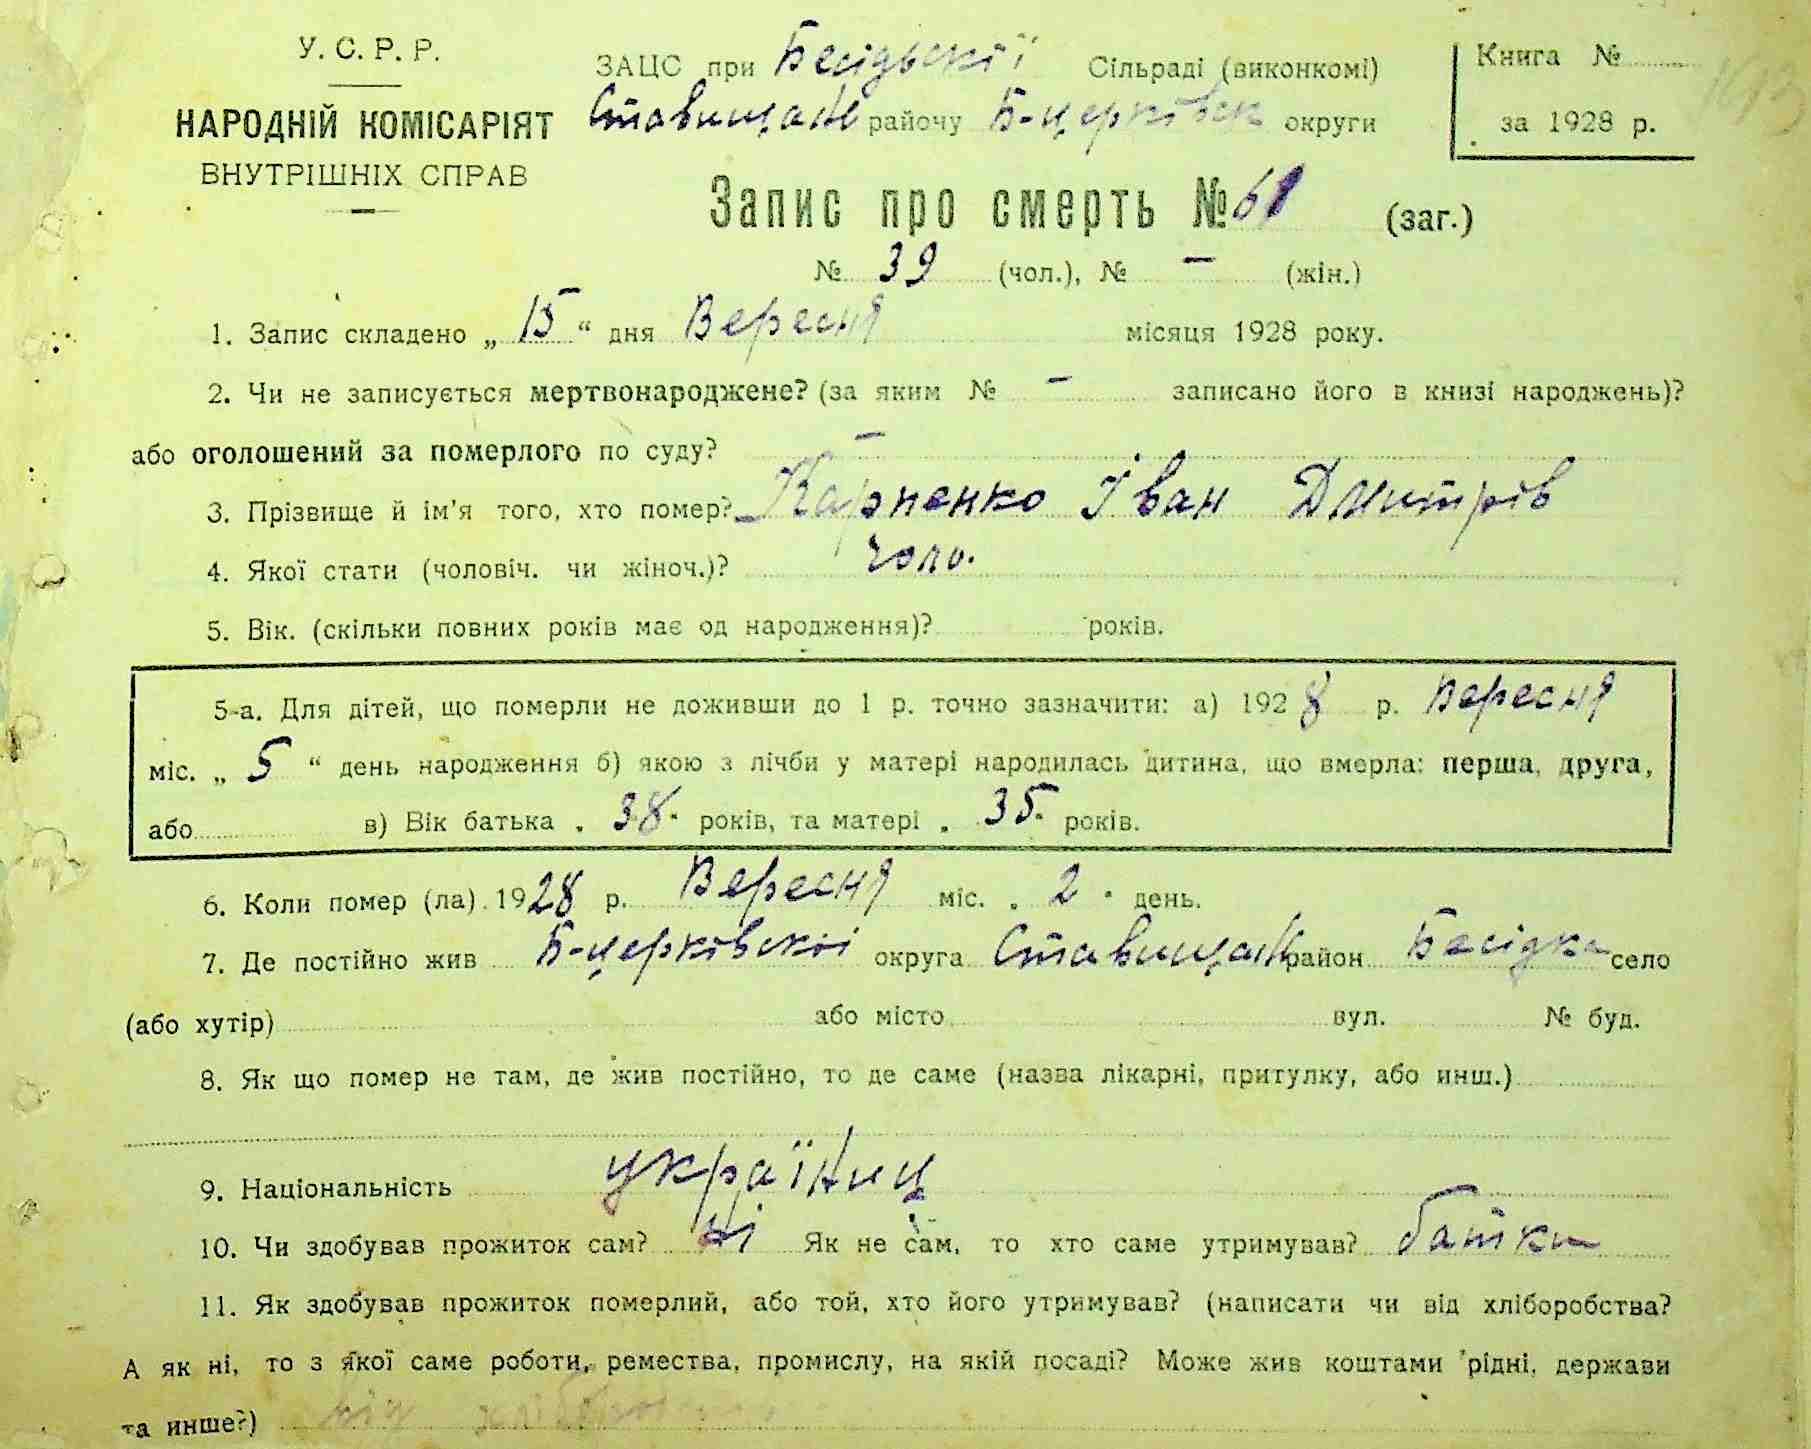 У. С. Р. Р.
НАРОДНІЙ КОМІСАРІЯТ
ВНУТРІШНІХ СПРАВ
ЗАЦС при Бесідьскії Сільраді (виконкомі)
Ставищан райочу Б-церківск округи
Книга №
за 1928 р.
Запис про смерть № 61 (заг.)
№ 39 (чол.), № – (жін.)
1. Запис складено „ 15 “ дня Вересня місяця 1928 року.
2. Чи не записується мертвонароджене? (за яким № – записано його в книзі народжень)?
або оголошений за померлого по суду? –
3. Прізвище й ім'я того, хто помер? Карпенко Іван Дмитрів
4. Якої стати (чоловіч. чи жіноч.)? чоло.
5. Вік. (скільки повних років має од народження)? років.
5-а. Для дітей, що померли не доживши до 1 р. точно зазначити: а) 1928 р. Вересня
міс. „ 5 “ день народження б) якою з лічби у матері народилась дитина, що вмерла: перша, друга,
або в) Вік батька „ 38 “ років, та матері „ 35 “ років.
6. Коли помер (ла) 1928 р. Вересня міс. „ 2 “ день.
7. Де постійно жив Б-церківскої округа Ставищан район Бесідка село
(або хутір) або місто вул. № буд.
8. Як що помер не там, де жив постійно, то де саме (назва лікарні, притулку, або инш.)
9. Національність українец
10. Чи здобував прожиток сам? Ні Як не сам, то хто саме утримував? батки
11. Як здобував прожиток померлий, або той, хто його утримував? (написати чи від хліборобства?
А як ні, то з якої саме роботи, ремества, промислу, на якій посаді? Може жив коштами рідні, держави
та инше?) від